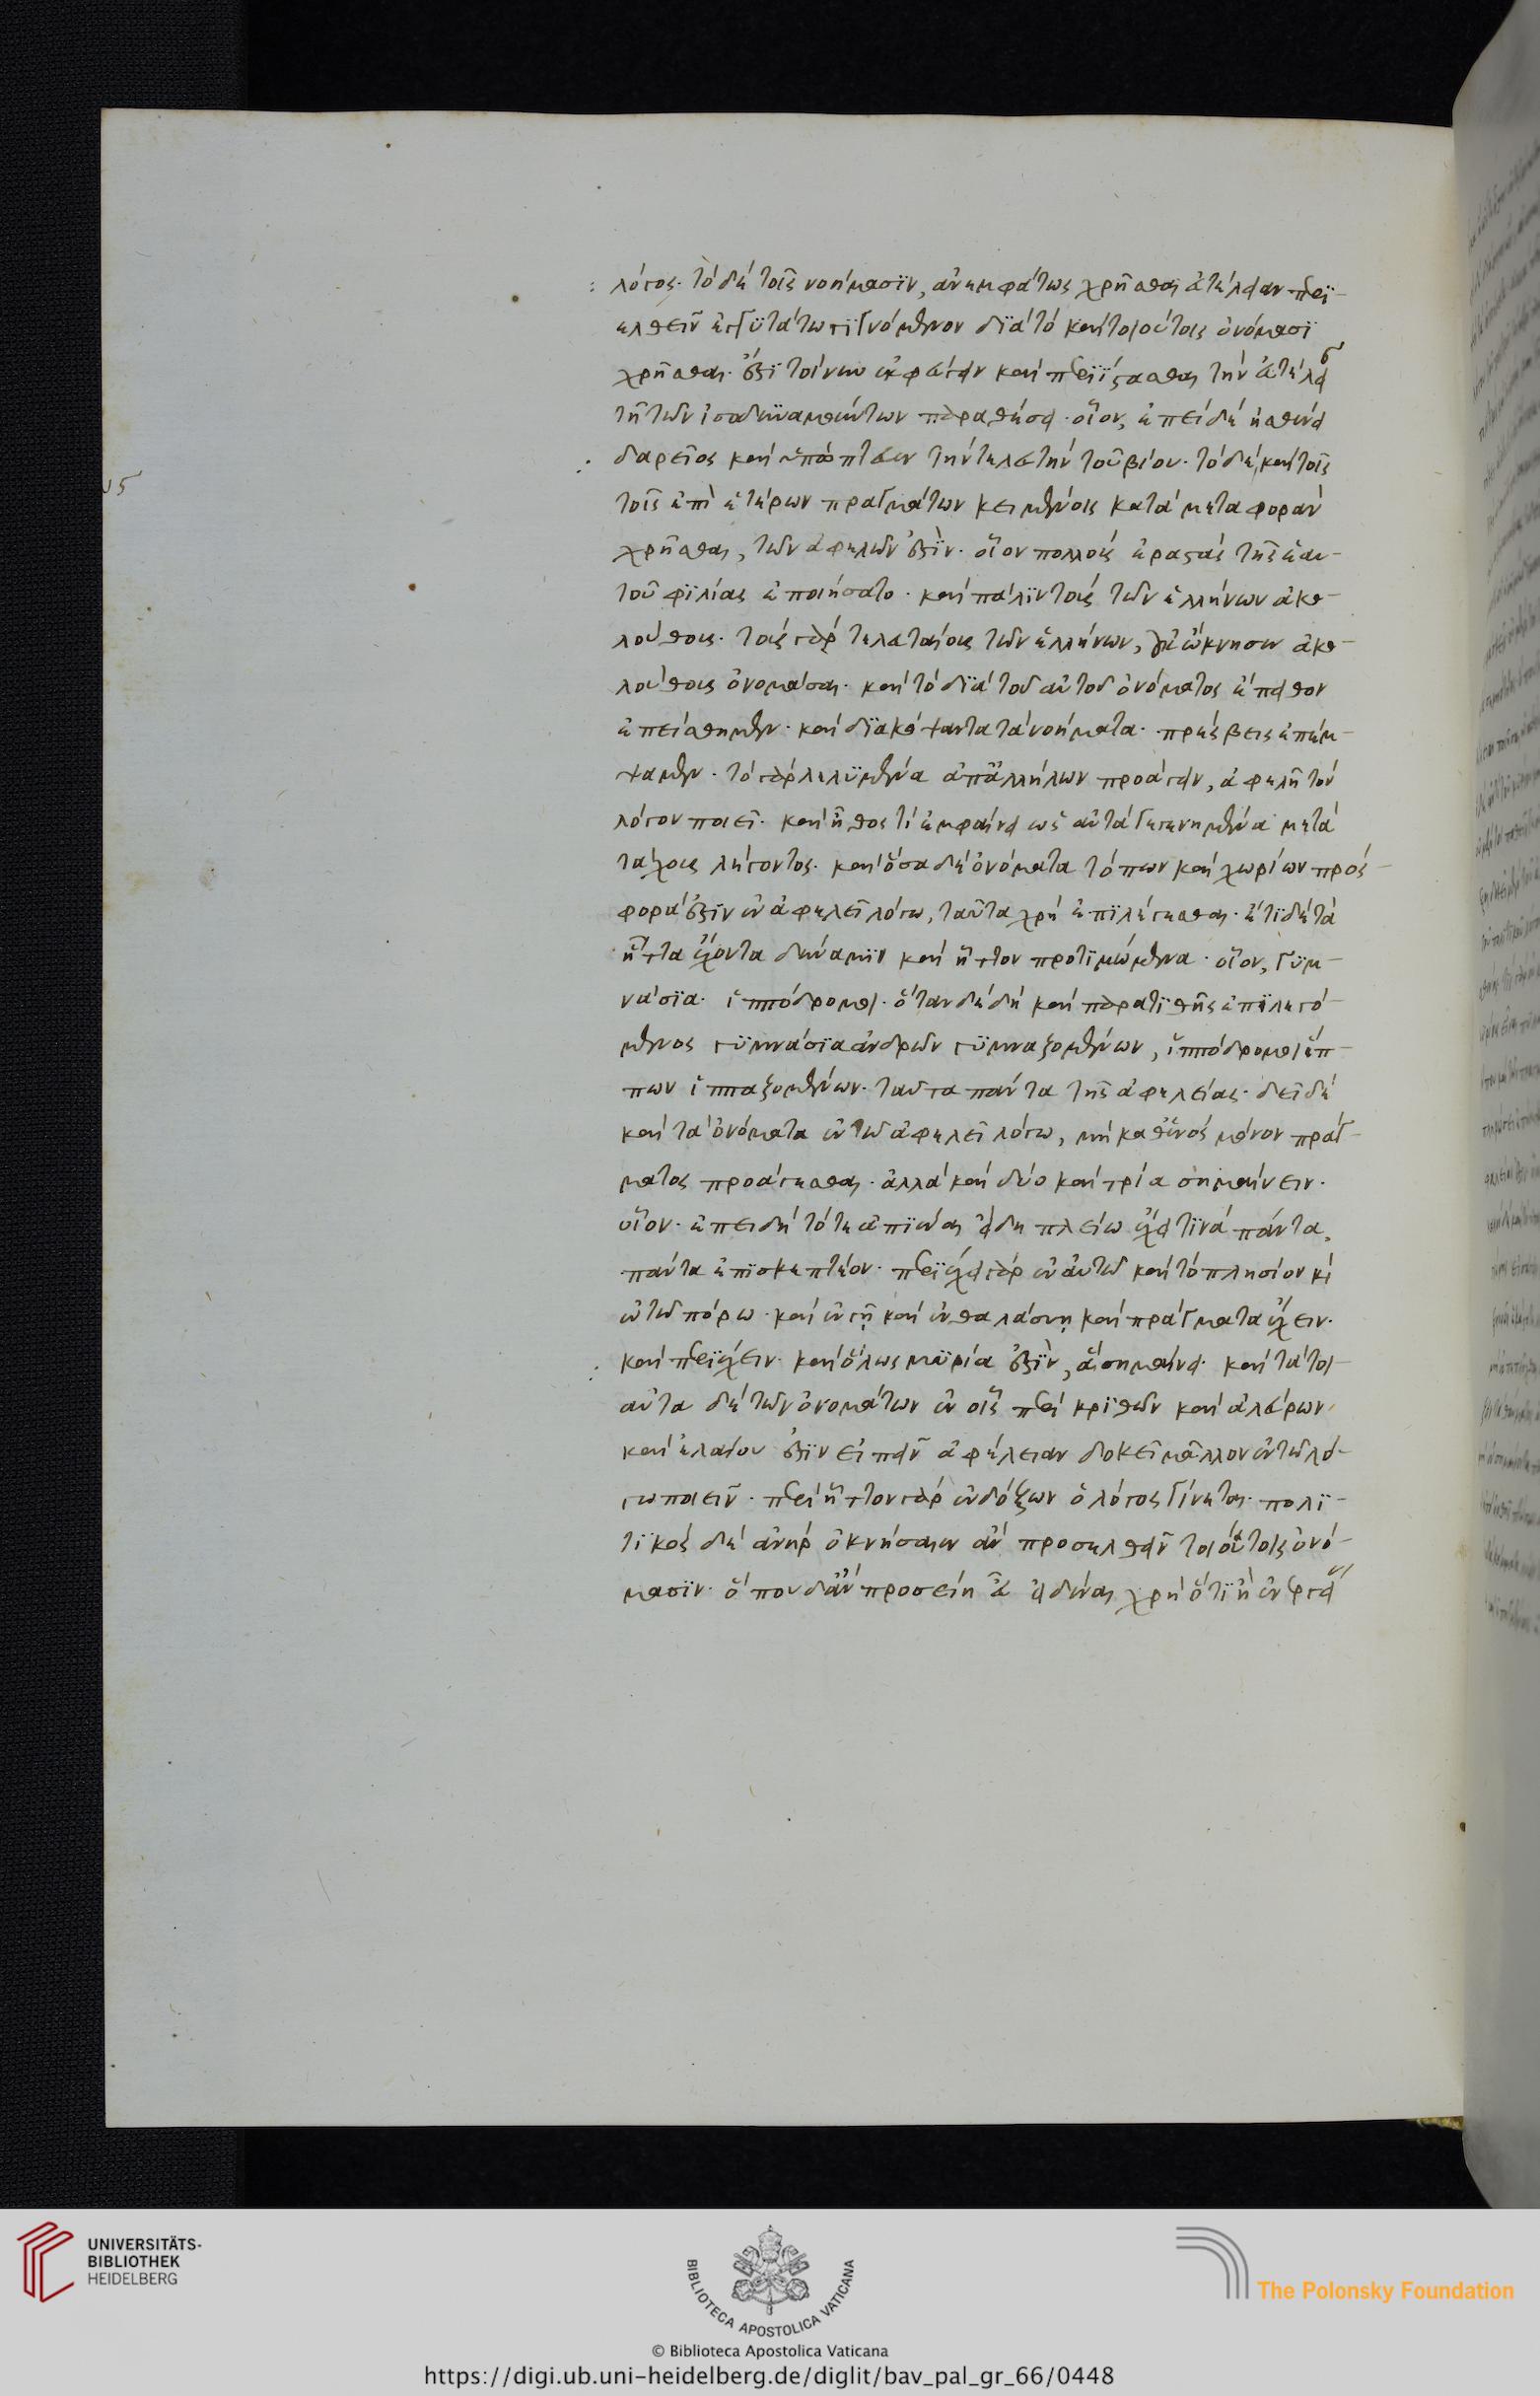 λόγος. τὸ δὲ τοῖς νοήμασϊν, ἀνεμφάτως χρῆσθαι ἀτέλειαν περϊ-
ελθεῖν ἐγγϋτάτω γϊγνόμενον δϊὰ τὸ καὶ τοιούτοις ὀνόμασϊ
χρῆσθαι. ἔστϊ τοίνυν ἐκφεύγειν καὶ περιΐστασθαι τὴν ἀτέλει
τῆ τῶν ἰσοδυναμούντων παραθέσει. οἷον, ἐπειδὴ ἠσθένει
δαρεῖος καὶ ὑπόπτευεν τὴν τελευτὴν τοῦ βίου. τὸ δὲ, καὶ τοῖς
τοῖς ἐπὶ ἑτέρων πραγμάτων κειμένοις κατὰ μεταφορὰν
χρῆσθαι, τῶν ἀφελῶν ἐστϊν. οἷον πολλοὺς ἐραστὰς τῆς ἑαυ-
τοῦ φϊλίας ἐποιήσατο. καὶ πάλϊν τοὺς τῶν ἑλλήνων ἀκο-
λούθους. τοὺς γὰρ τελευταίους τῶν ἑλλήνων, οὐκ ὤκνησεν ἀκο-
λούθους ὀνομάσαι. καὶ τὸ δϊὰ τοῦ αὐτοῦ ὀνόματος ἔπειθον
ἐπείσθημεν. καὶ δϊακόψαντα τὰ νοήματα. πρέσβεις ἐπέμ-
ψαμεν. τὸ γὰρ λελϋμένα ἀπ' ἀλλήλων προάγειν, ἀφελῆ τὸν
λόγον ποιεῖ. καὶ ἦθός τι ἐμφαίνει ὡς αὐτὰ γεγενημένα μετὰ
τάχους λέγοντος. καὶ ὅσα δὲ ὀνόματα τόπων καὶ χωρίων πρόσ-
φορά ἐστϊν ἐν ἀφελεῖ λόγω, ταῦτα χρὴ ἐπϊλέγεσθαι. ἔτϊ δὲ τὰ
ἧττα ἔχοντα δύναμϊν καὶ ἧττον προτϊμώμενα. οἷον, γϋμ-
νάσϊα. ἱππόδρομοι. ὅταν δὲ δὴ καὶ παρατϊθῆς ἐπϊλεγό-
μενος γϋμνάσϊα ἀνδρῶν γϋμναζομένων, ἱππόδρομοι ἵπ-
πων ἱππαζομένων. ταῦτα πάντα τῆς ἀφελείας. δεῖ δὲ
καὶ τὰ ὀνόματα ἐν τῶ ἀφελεῖ λόγω, μὴ καθ' ἑνὸς μόνον πράγ-
ματος προάγεσθαι. ἀλλὰ καὶ δύο καὶ τρία σημαίνειν.
οἷον. ἐπειδὴ τότε ἀπϊέναι ἤδη πλείω ἔχει τϊνὰ πάντα.
πάντα ἐπϊσκεπτέον. περϊέχει γὰρ ἐν αὐτῶ καὶ τὸ πλησίον κὶ
ἐν τῶ πόρω. καὶ ἐν γῇ καὶ ἐν θαλάσσῃ καὶ πράγματα ἔχειν.
καὶ περϊέχειν. καὶ ὅλως μϋρία ἐστὶν, ἃ σημαίνει. καὶ τὰ τοι-
αῦτα δὲ τῶν ὀνομάτων ἐν οἷς περὶ κρϊθῶν καὶ ἀλεύρων
καὶ ἐλαίου ἐστϊν εἰπεῖν ἀφέλειαν δοκεῖ μᾶλλον ἐν τῶ λό-
γω ποιεῖν. περὶ ἧττον γὰρ ἐνδόξων ὁ λόγος γίνεται. πολϊ-
τϊκὸς δὲ ἀνὴρ ὀκνήσαιεν ἂν προσελθεῖν τοιούτοις ὀνό-
μασϊν. ὅπου δ' ἂν προσείη εἰδέναι χρὴ ὅτϊ ἢ ἐν
UNIVERSITÄTS-
BIBLIOTHEK
HEIDELBERG
BIBLIOTECA APOSTOLICA VATICANA
The Polonsky Foundation
© Biblioteca Apostolica Vaticana
https://digi.ub.uni-heidelberg.de/diglit/bav_pal_gr_66/0448